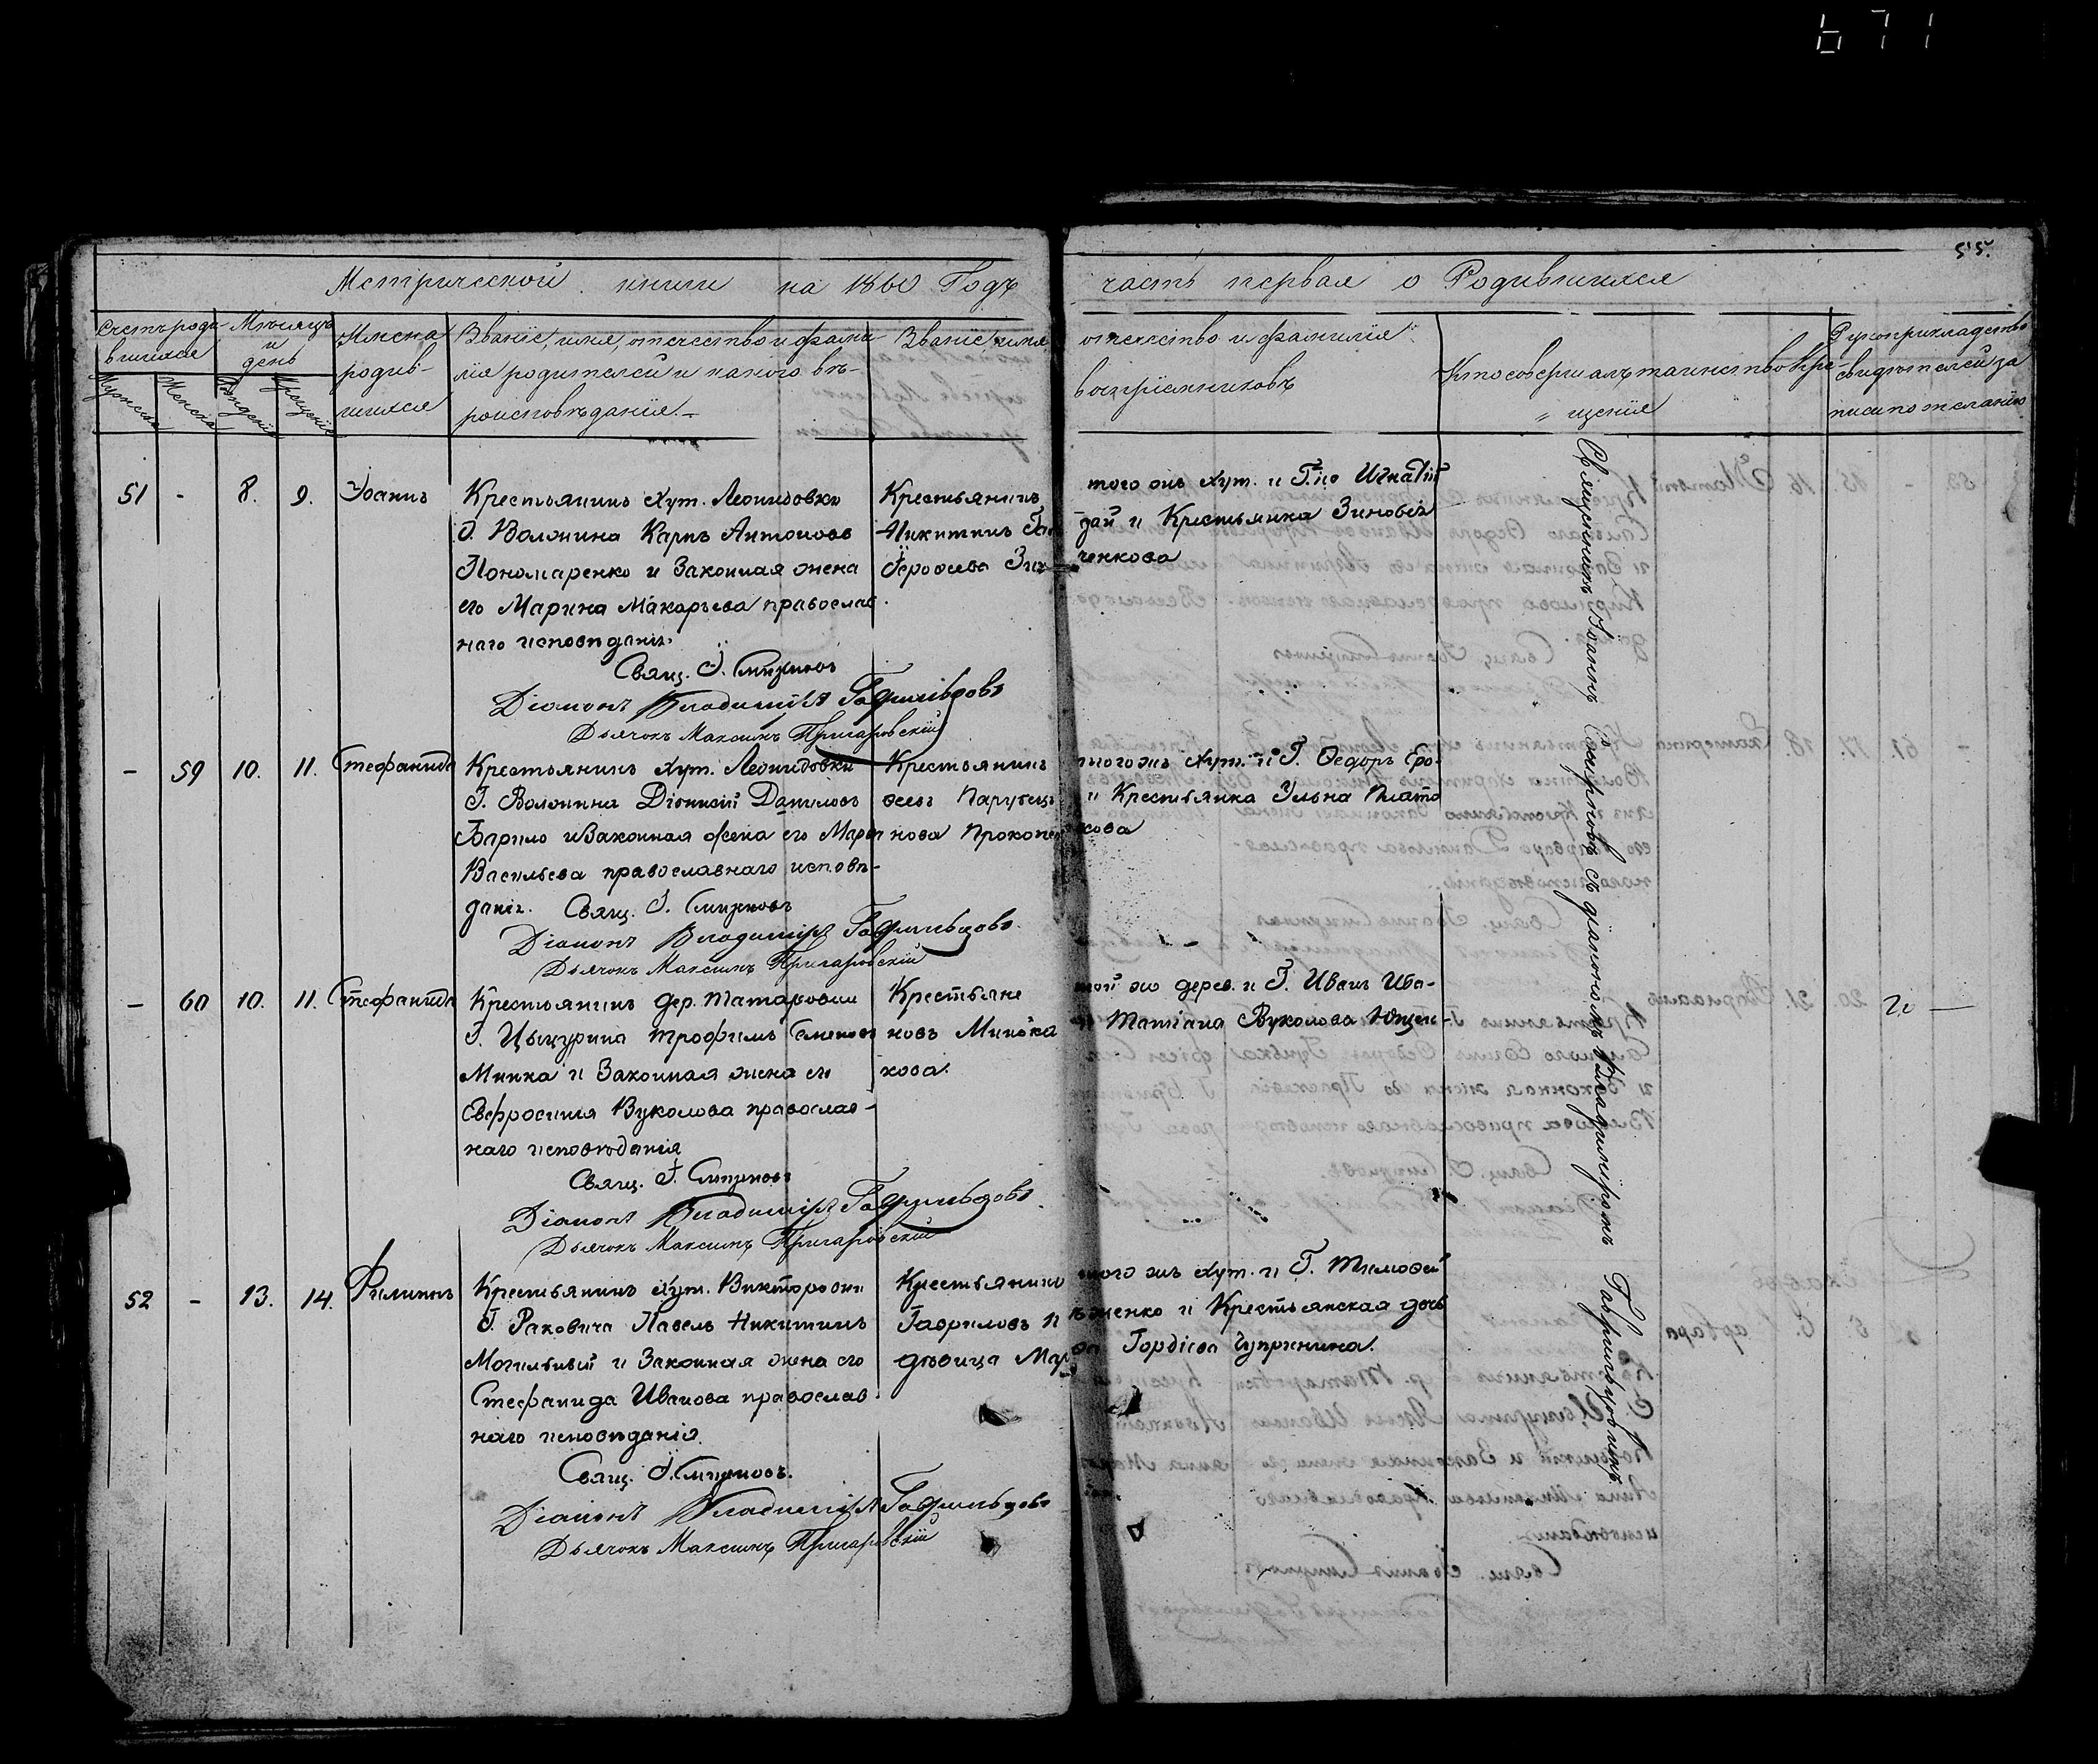 671
55.
Метрической книги на 1860 Годъ часть первая о Родившихся
Счетъ роди-
вшихся
Мужеска
Женска
Мѣсяцъ
и
день
Рожденія
Крещенія
Имена
родив-
шихся
Званіе, имя, отечество и фами-
лія родителей и какого вѣ-
роисповѣданія.
Званіе, имя
отечество и фамилія
воспріемниковъ
Кто совершалъ таинство Кре-
щенія
Рукоприкладство
свидѣтелей за
писи по желанію
51 - 8. 9. Іоаннъ
Крестьянинъ Хут. Леонидовки
Г. Волонина Карпъ Антоновъ
Пономаренко и Законная жена
его Марина Макарьева православ
наго исповѣданія.
Свящ. І. Смирновъ
Діаконъ Владиміръ Гаврильцовъ
Дьячокъ Максимъ Пригаровскій
Крестьянинъ того жъ хут. и Г. Игнатій
Никитинъ и Крестьянка Зиновія
ченкова
- 59 10. 11. Стефанида
Крестьянинъ хут. Леонидовки
Г. Волонина Діонисій Даниловъ
Барило и Законная жена его Марѳа
Васильева православнаго исповѣ-
данія. Свящ. І. Смирновъ
Діаконъ Владиміръ Гаврильцовъ
Дьячокъ Максимъ Пригаровскій
Крестьянинъ тогожъ Хут. и Г. Ѳедоръ Еро-
ѳеевъ и Крестьянка Ульна Плато
нова
- 60 10. 11. Стефанида
Крестьянинъ дер. Татаровки
Г. Цыцурина Трофимъ Семеновъ
Минка и Законная жена его
Евфросинія Вуколова православ-
наго исповѣданія
Свящ. І. Смирновъ
Діаконъ Владиміръ Гаврильцовъ
Дьячокъ Максимъ Пригаровскій
Крестьяне той жо дерев. и Г. Иванъ Ива-
новъ Минока и Татіана Вуколова Ющен-
кова.
52 - 13. 14. Филиппъ
Крестьянинъ хут. Викторовки
Г. Раковича Павелъ Никитинъ
Могильный и Законная жена его
Стефанида Иванова православ
наго исповѣданія.
Свящ. І. Смирновъ.
Діаконъ Владиміръ Гаврильцовъ
Дьячокъ Максимъ Пригаровскій
Крестьянинъ того жъ хут. и Г. Тимоѳей
Гавриловъ и Крестьянская дочь
дѣвица Гордіева Чупринина.
Священникъ Іоаннъ Смирновъ съ діакономъ Владиміромъ Гаврильцовымъ